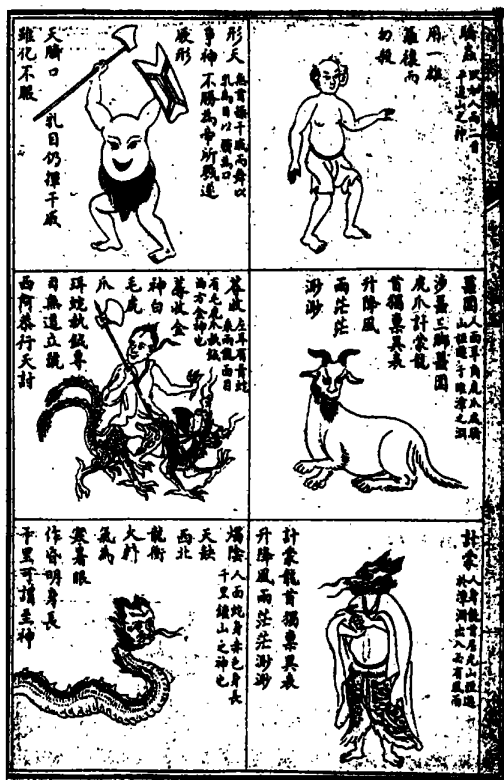 驕蟲 狀如人而二首
平逢山之神
用一雄
雞禳而
勿殺
形天 無首操干戚而舞以
乳為目以臍為口
爭神不勝為帝所戮遂
厥形
天臍口
乳目仍揮干戚
雖化不服
䰠圍 人面羊角虎爪
恒遊于雎漳之淵
涉䰠三腳䰠圍
虎爪計蒙龍
首獨稟異表
升降風
雨茫茫
渺渺
蓐收 左耳有青蛇
乘兩龍面目
有毛虎爪執鉞
西方金神也
蓐收金
神白
毛虎
爪
珥蛇執鉞專
司無道立號
西阿恭行天討
計蒙 人身龍首居光山恒遊
於漳淵出入必有風雨
計蒙龍首獨稟異表
升降風雨茫茫渺渺
燭陰 人面蛇身赤色身長
千里鍾山之神也
天缺
西北
龍銜
火精
氣為
寒暑眼
作昏明身長
千里可謂至神